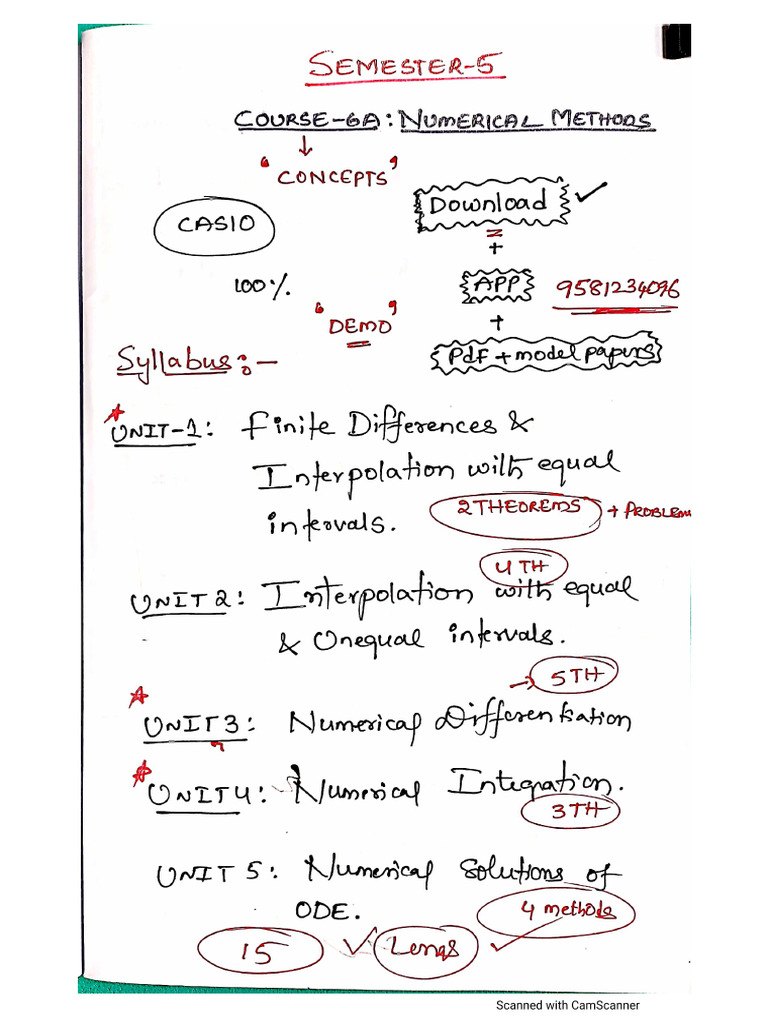 SEMESTER-5
COURSE-6A: NUMERICAL METHODS
"CONCEPTS"
CASIO
Download
+
100%
APP
9581234096
"DEMO"
+
Pdf + model papers
Syllabus:-
UNIT-1: Finite Differences &
Interpolation with equal
intervals.
2 THEOREMS + PROBLEM
4 TH
UNIT 2: Interpolation with equal
& Unequal intervals.
5 TH
UNIT 3: Numerical Differentiation
UNIT 4: Numerical Integration.
3 TH
UNIT 5: Numerical Solutions of
ODE.
4 methods
15
Scanned with CamScanner